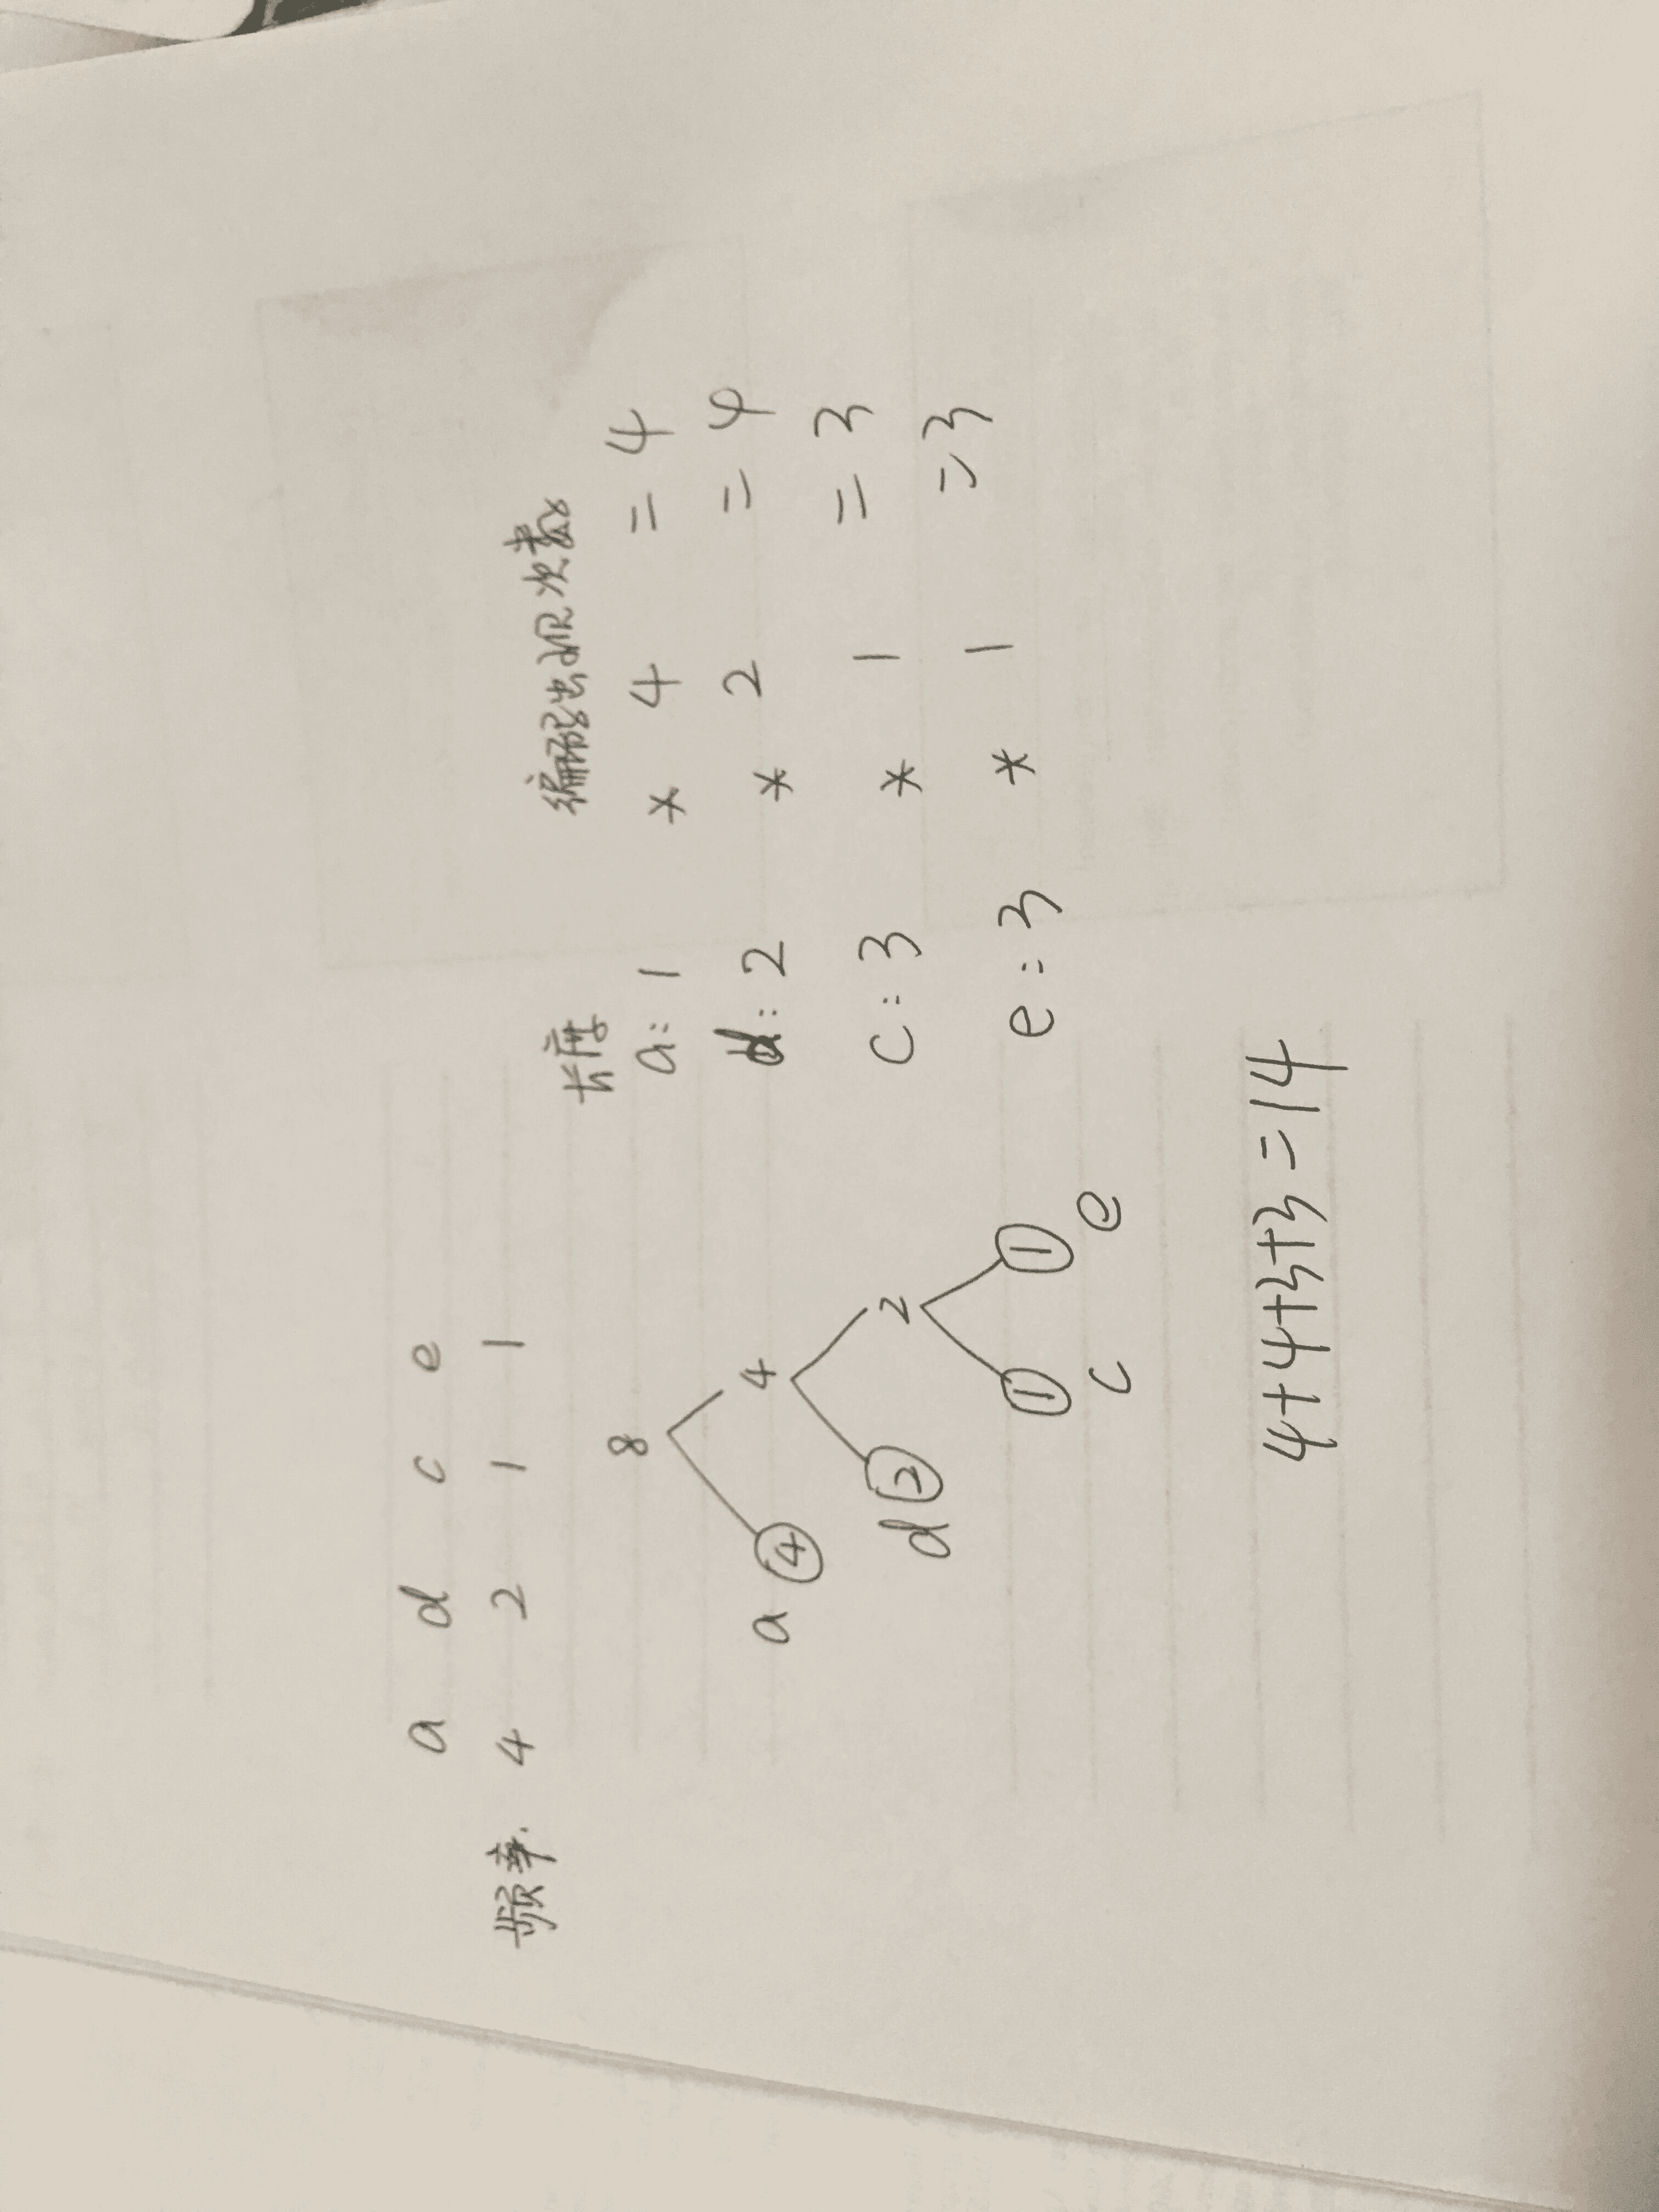 a d c e
频率. 4 2 1 1
8
a ④ 4
d ② 2
① ①
c e
长度 编码出现次数
a: 1 * 4 = 4
d: 2 * 2 = 4
c: 3 * 1 = 3
e: 3 * 1 = 3
4+4+3+3=14